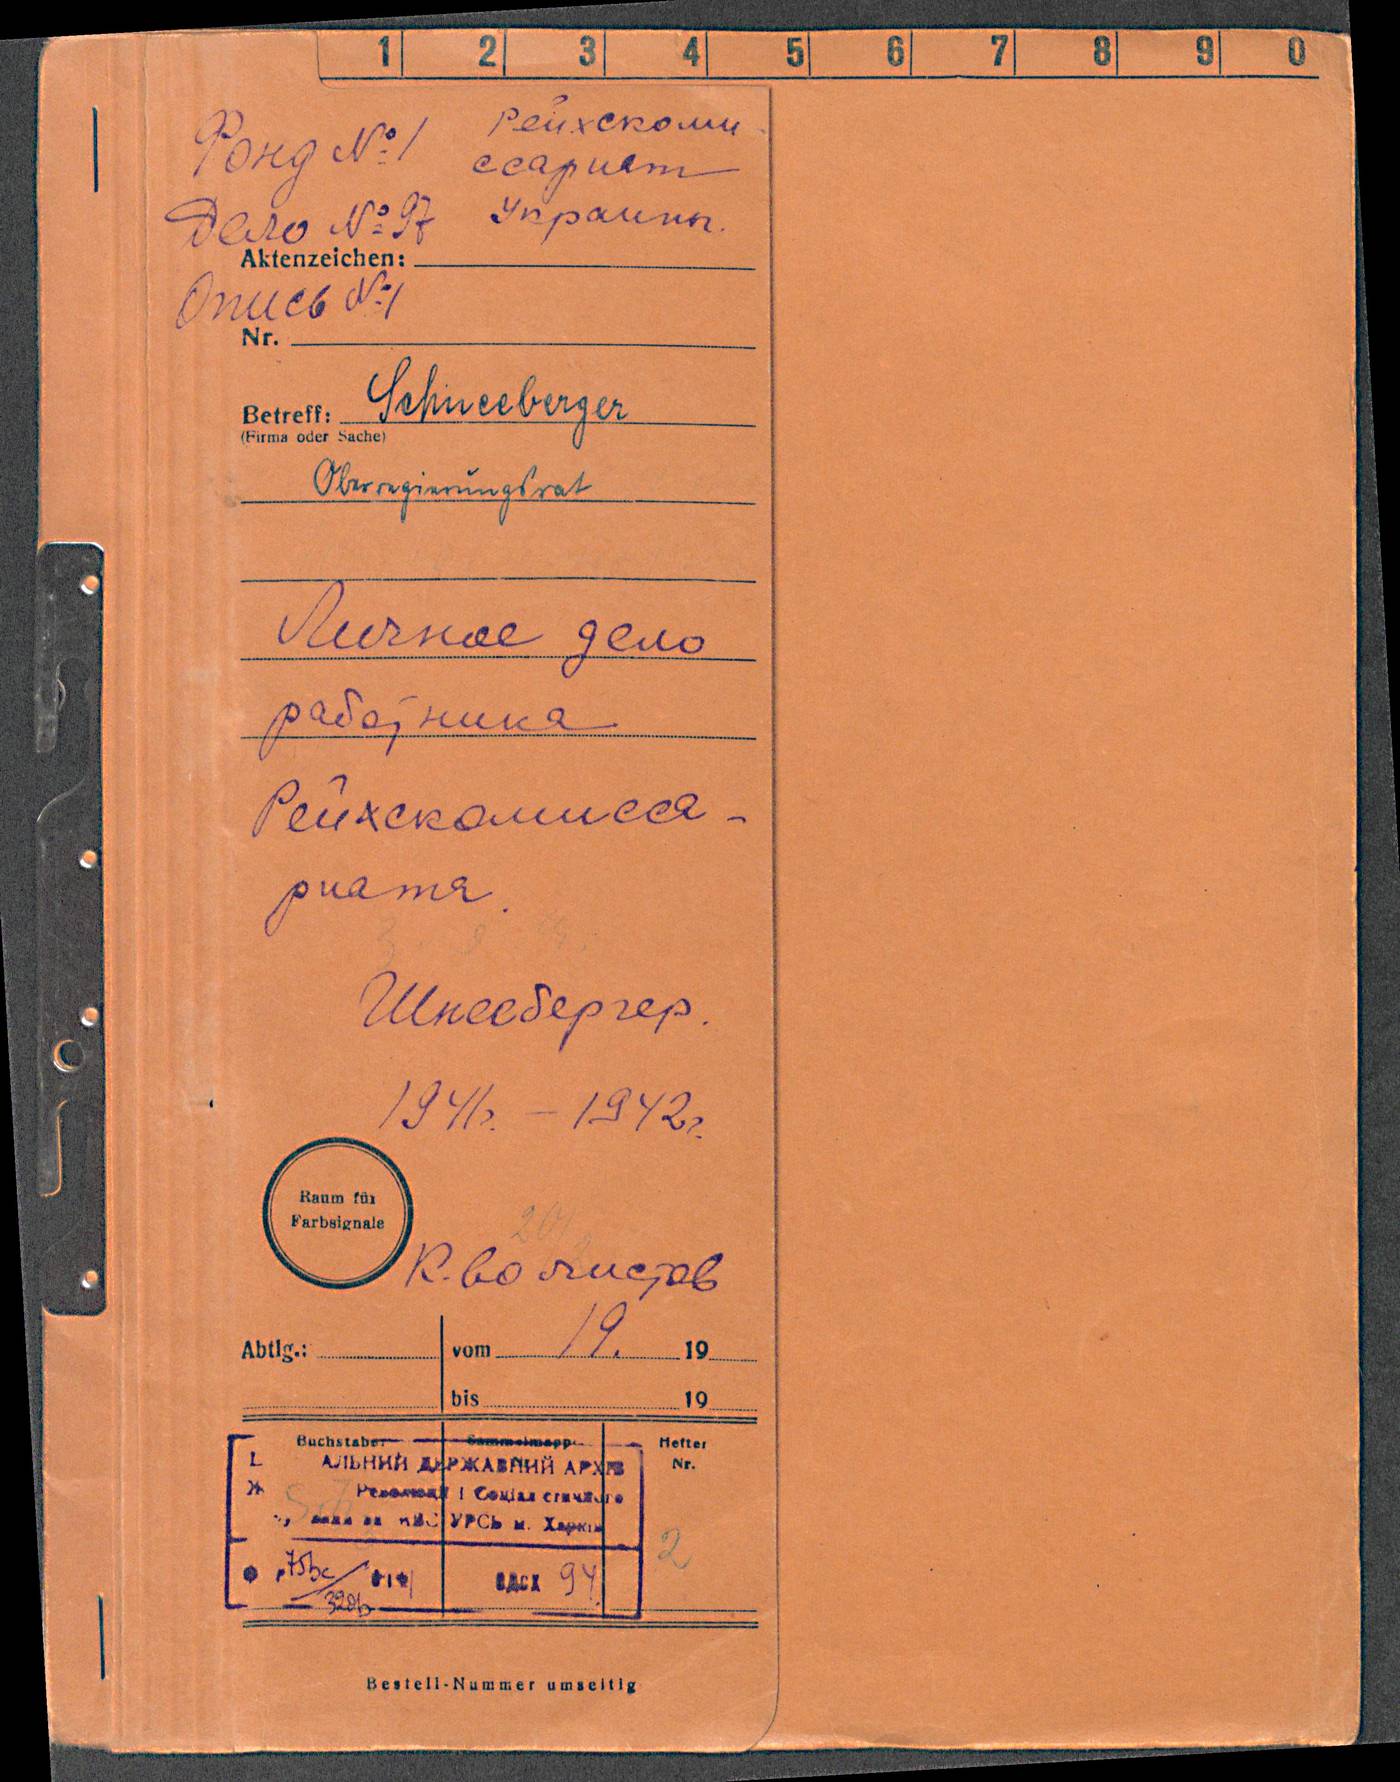 1 2 3 4 5 6 7 8 9 0
Фонд № 1
Рейхскоми-
ссариат
Украины.
Дело № 97
Aktenzeichen:
Опись № 1
Nr.
Betreff: Schneeberger
(Firma oder Sache)
Oberregierungsrat
Личное дело
работника
Рейхскомисса-
риата.
Шнеебергер.
1941г. – 1942г.
Raum für
Farbsignale
К-во листов
19.
Abtlg.: vom 19
bis 19
Buchstabe: Sammelmappe Hefter
Nr.
АЛЬНИЙ ДЕРЖАВНИЙ АРХІВ
Революції і Соціалістичного
УРСР м. Харків
94
2
Bestell-Nummer umseitig